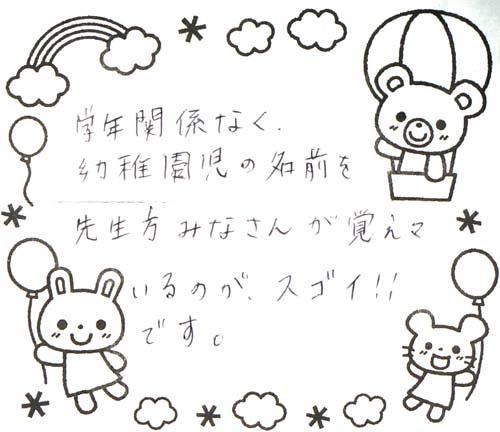 学年関係なく、
幼稚園児の名前を
先生方みなさんが覚えて
いるのが、スゴイ!!
です。